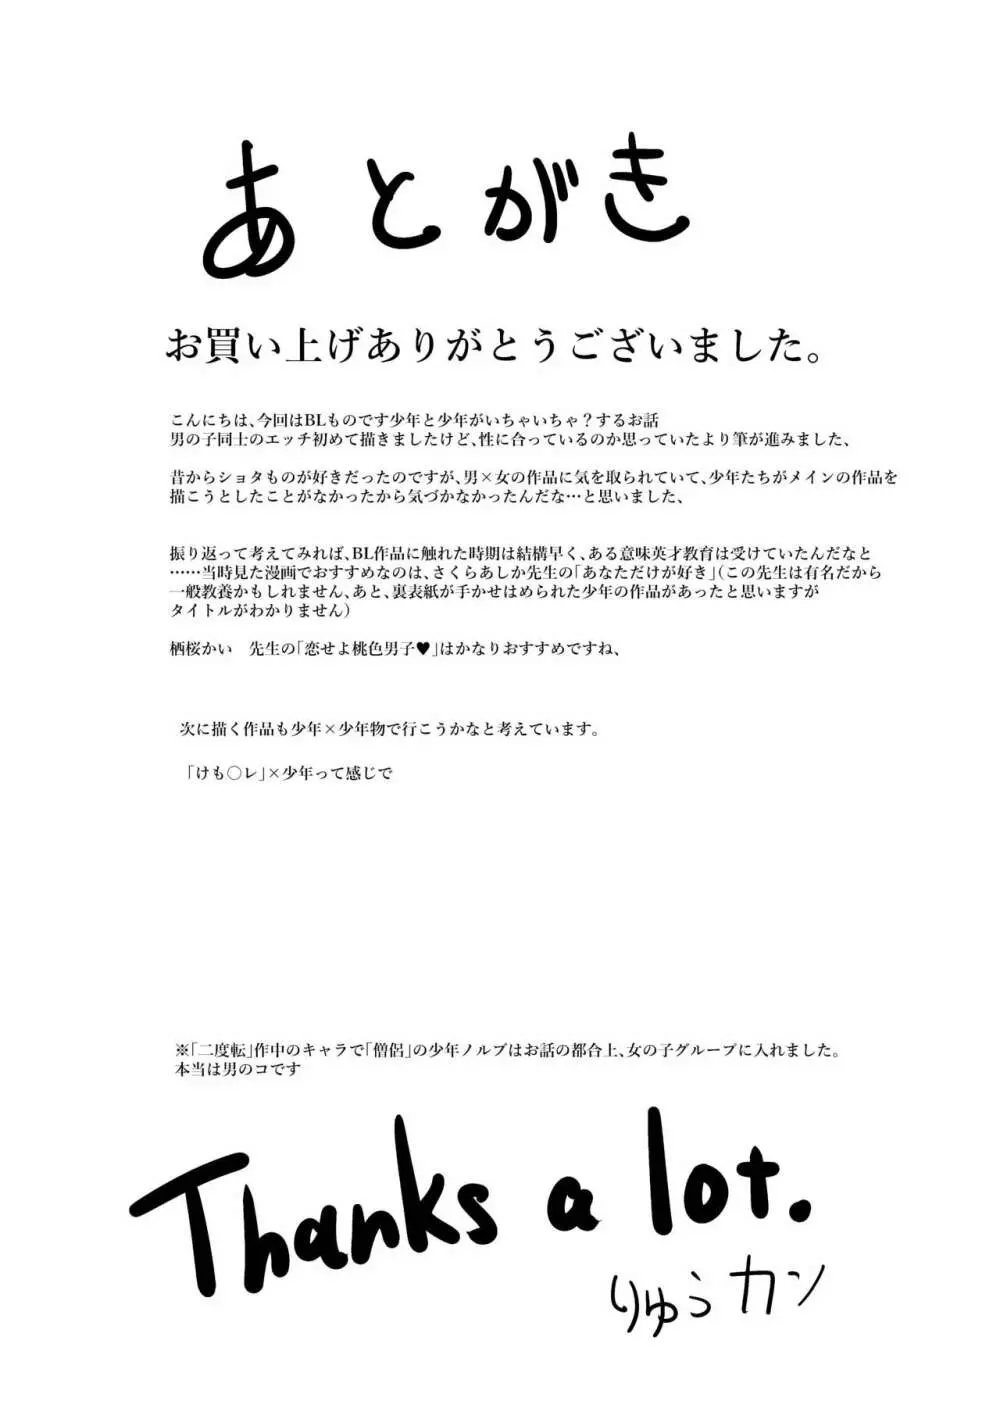 あとがき
お買い上げありがとうございました。
こんにちは、今回はBLものです少年と少年がいちゃいちゃ?するお話
男の子同士のエッチ初めて描きましたけど、性に合っているのか思っていたより筆が進みました、
昔からショタものが好きだったのですが、男×女の作品に気を取られていて、少年たちがメインの作品を
描こうとしたことがなかったから気づかなかったんだな…と思いました、
振り返って考えてみれば、BL作品に触れた時期は結構早く、ある意味英才教育は受けていたんだなと
……当時見た漫画でおすすめなのは、さくらあしか先生の「あなただけが好き」(この先生は有名だから
一般教養かもしれません、あと、裏表紙が手かせはめられた少年の作品があったと思いますが
タイトルがわかりません)
栖桜かい　先生の「恋せよ桃色男子♥」はかなりおすすめですね、
次に描く作品も少年×少年物で行こうかなと考えています。
「けも○レ」×少年って感じで
※「二度転」作中のキャラで「僧侶」の少年ノルブはお話の都合上、女の子グループに入れました。
本当は男のコです
Thanks a lot.
りゅうカン